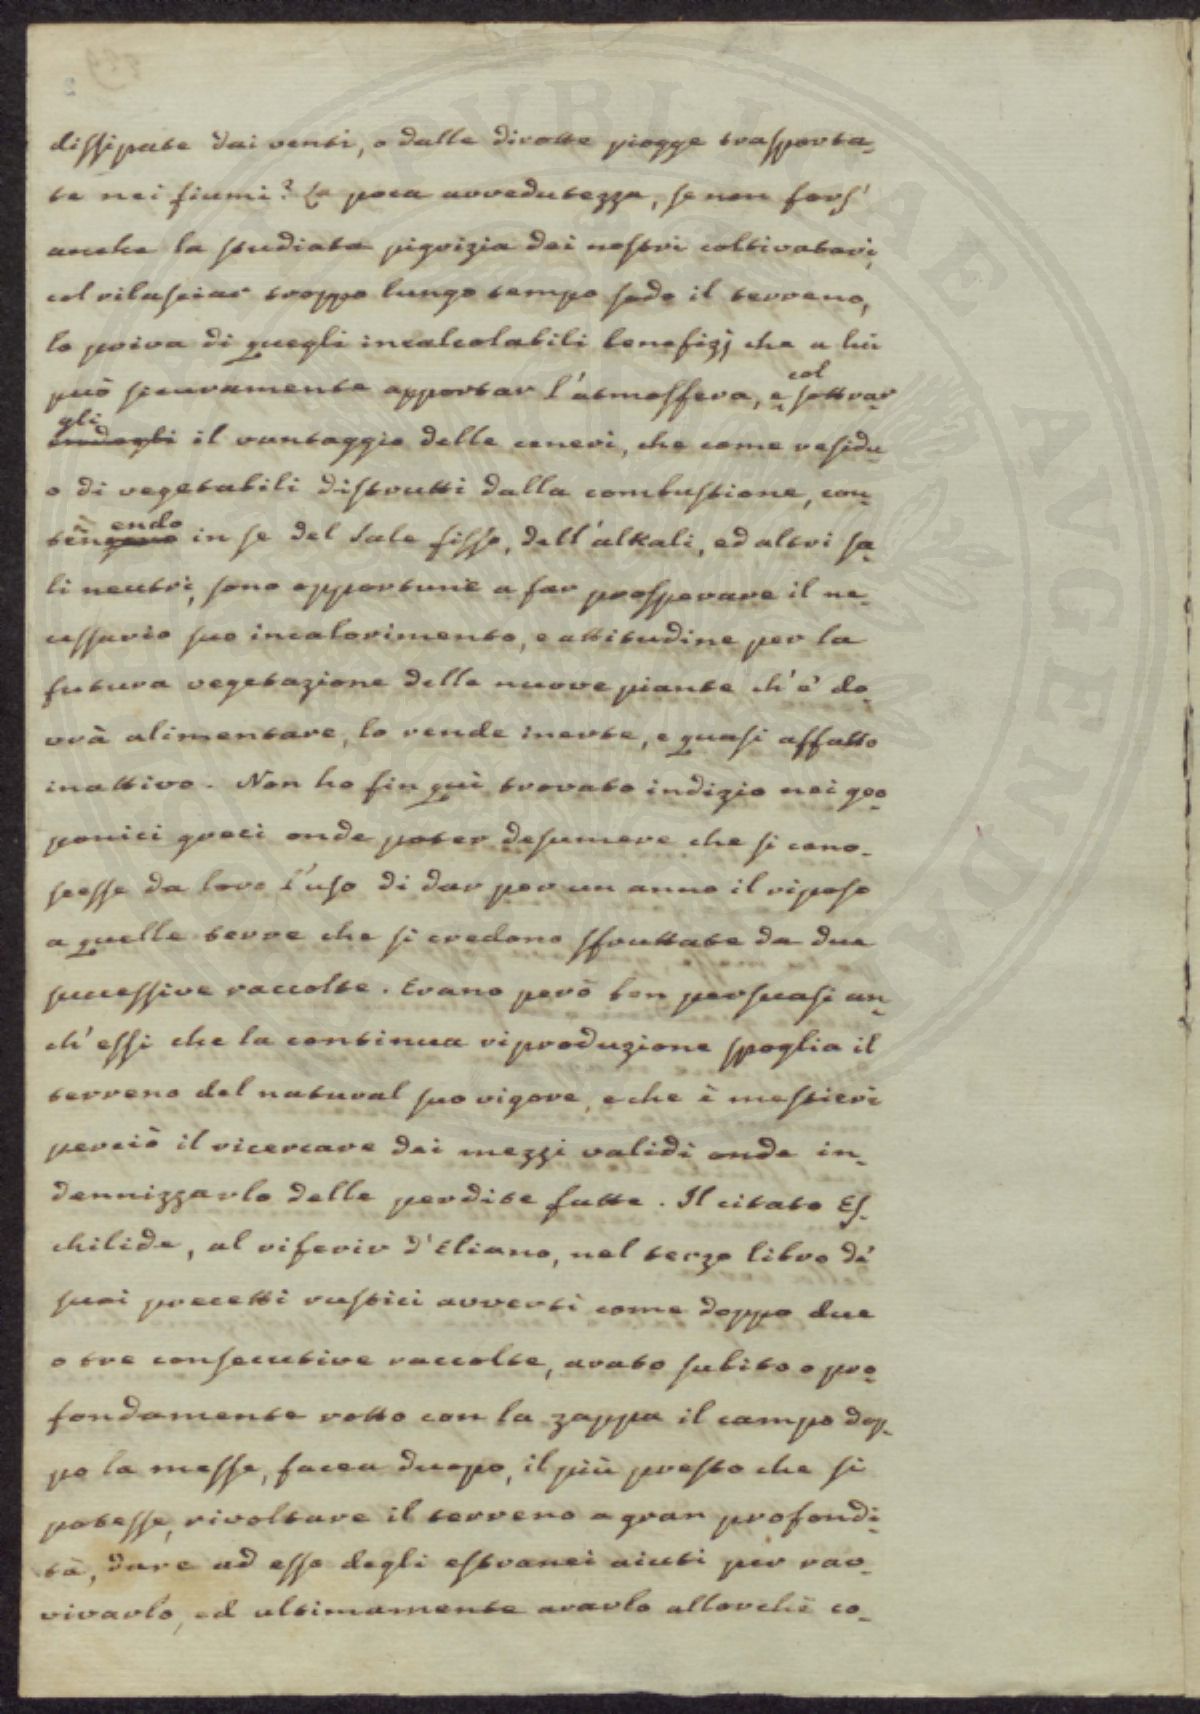 dissipate dai venti, o dalle dirotte piogge trasporta-
te nei fiumi? La poca avvedutezza, se non fors'
anche la studiata pigrizia dei nostri coltivatori,
col rilasciar troppo lungo tempo sodo il terreno,
lo priva di quegli incalcolabili benefizj che a lui
col
può sicuramente apportar l'atmosfera, e sottrar-
gli
endogli il vantaggio delle ceneri, che come residu-
o di vegetabili distrutti dalla combustione, con-
endo
tengono in se del Sale fisso, dell'alkali, ed altri sa-
li neutri, sono opportune a far prosperare il ne-
cessario suo incalorimento, e attitudine per la
futura vegetazione delle nuove piante ch'e' do-
vrà alimentare, lo rende inerte, e quasi affatto
inattivo. Non ho fin quì trovato indizio nei geo-
ponici greci onde poter desumere che si cono-
scesse da loro l'uso di dar per un anno il riposo
a quelle terre che si credono sfruttate da due
successive raccolte. Erano però ben persuasi an-
ch'essi che la continua riproduzione spoglia il
terreno del natural suo vigore, e che è mestieri
perciò il ricercare dei mezzi validi onde in-
dennizzarlo delle perdite fatte. Il citato Es-
chilide, al riferir d'Eliano, nel terzo libro de'
suoi precetti rustici avvertì come doppo due
o tre consecutive raccolte, arato subito o pro-
fondamente rotto con la zappa il campo dop-
po la messe, facea duopo, il più presto che si
potesse, rivoltare il terreno a gran profondi-
tà, dare ad esso degli estranei aiuti per rav-
vivarlo, ed ultimamente ararlo allorchè co-
PVBLICAE AVGENDAE